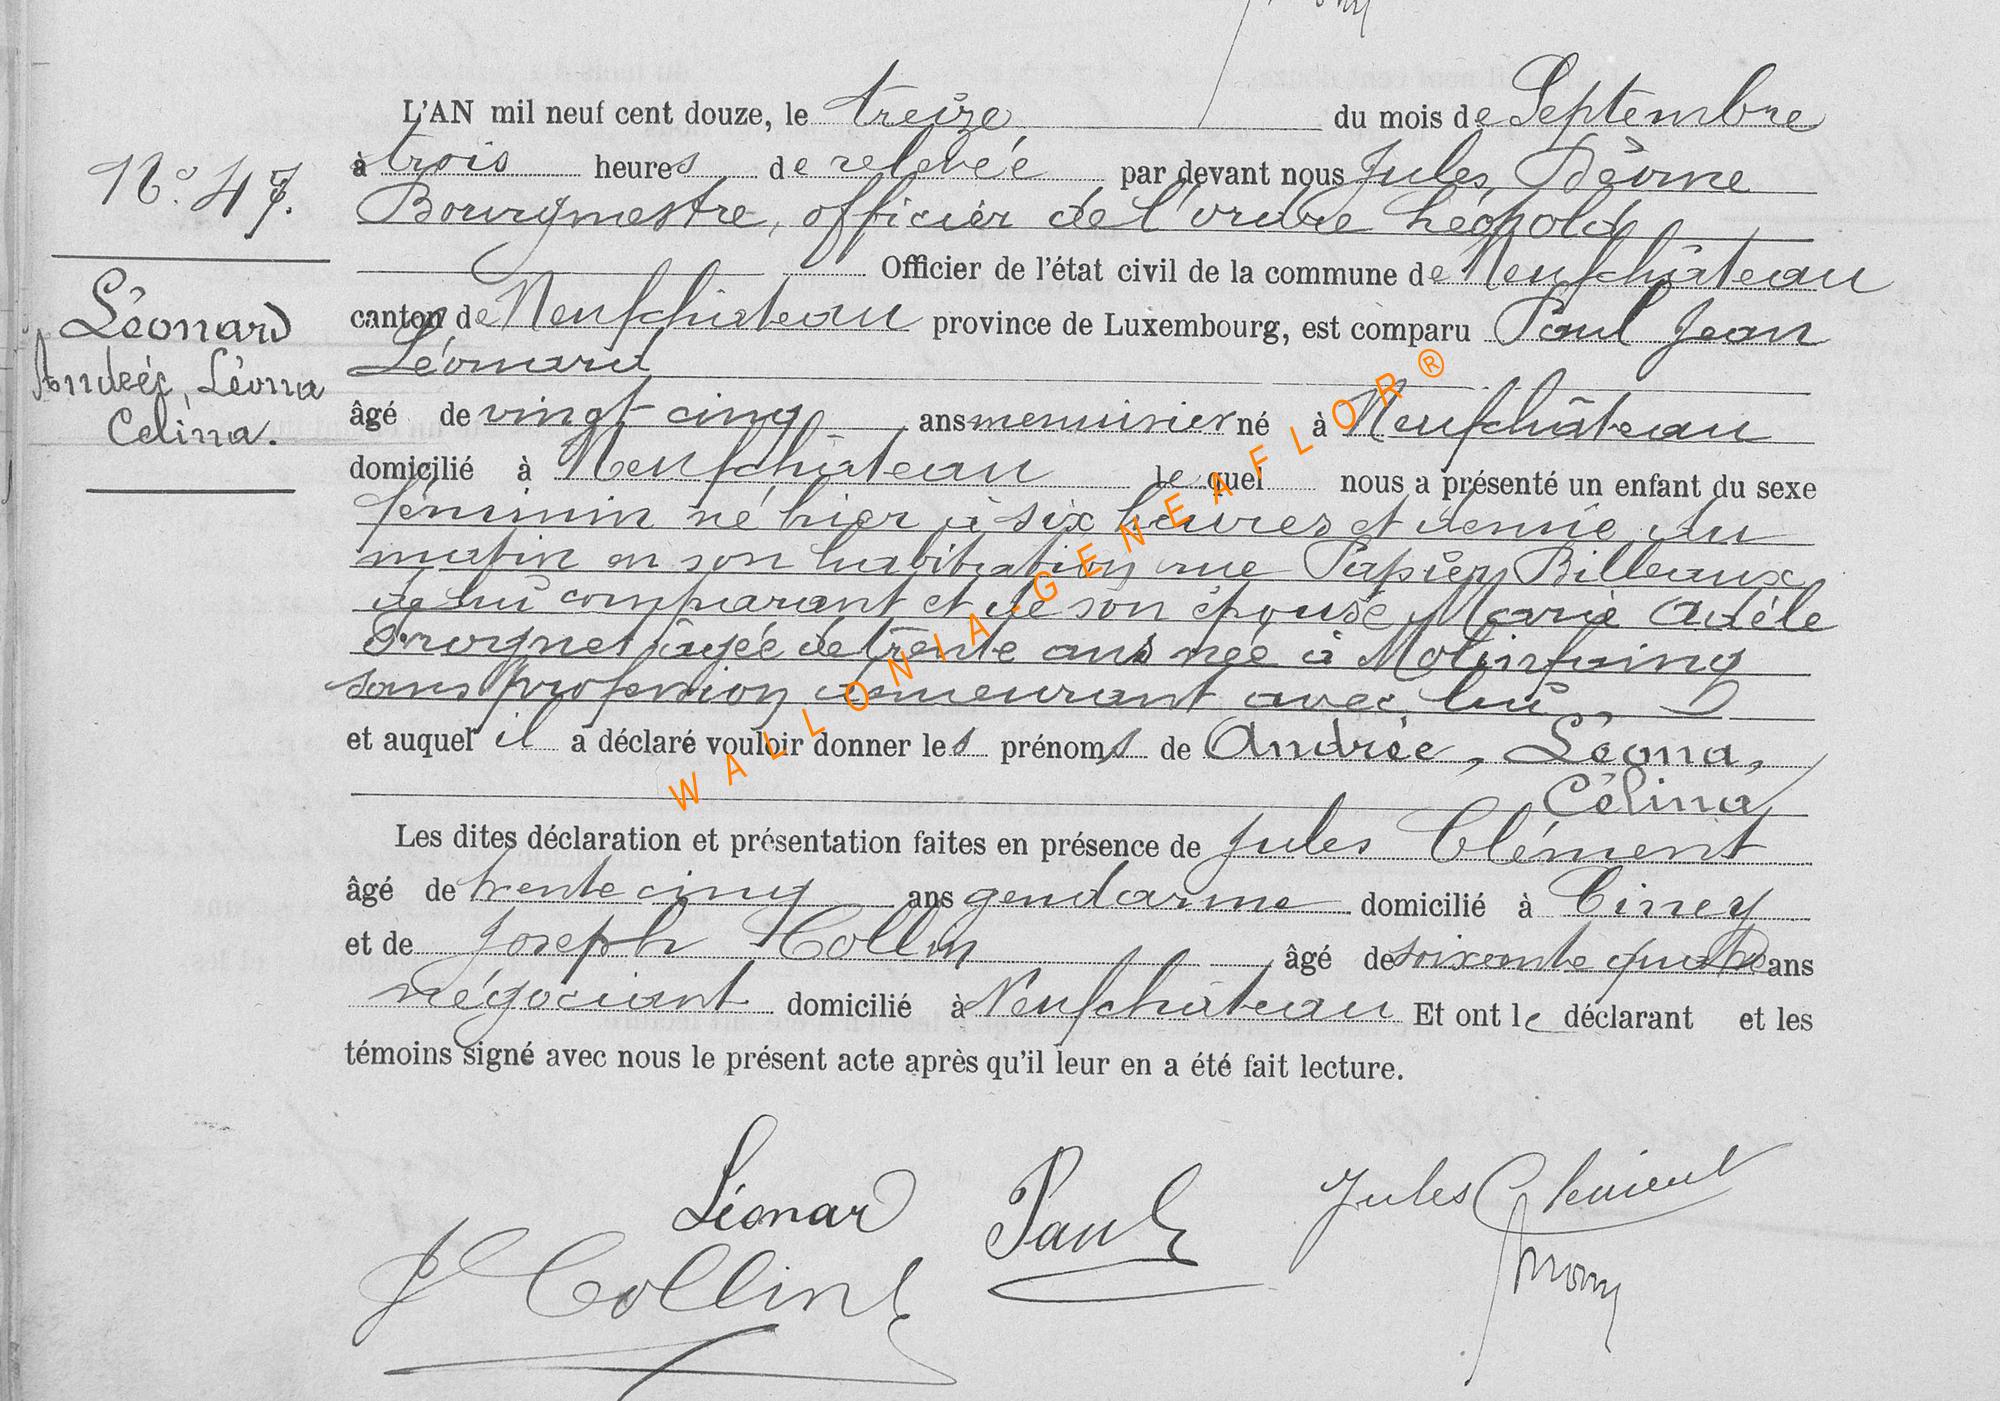 L'AN mil neuf cent douze, le treize du mois de Septembre
à trois heures de relevée par devant nous Jules
N°. 47.
Bourgmestre, officier de l'ordre Léopold
Officier de l'état civil de la commune de Neufchâteau
Léonard
Andrée, Léona
Celina.
canton de Neufchâteau province de Luxembourg, est comparu Paul Jean
Léonard
âgé de vingt-cinq ans menuisier né à Neufchâteau
domicilié à Neufchâteau lequel nous a présenté un enfant du sexe
féminin né hier à six heures et demie du
matin en son habitation rue Billeaux
de lui comparant et de son épouse Marie Adèle
âgée de trente ans née à Molinfaing
sans profession demeurant avec lui
et auquel il a déclaré vouloir donner les prénoms de Andrée, Léona,
Célina
Les dites déclaration et présentation faites en présence de Jules Clément
âgé de trente cinq ans gendarme domicilié à Ciney
et de Joseph Collin âgé de soixante quatre ans
négociant domicilié à Neufchâteau Et ont le déclarant et les
témoins signé avec nous le présent acte après qu'il leur en a été fait lecture.
Léonard Paul Jules Clément
J Collin
WALLONIA-GENEAFLOR®